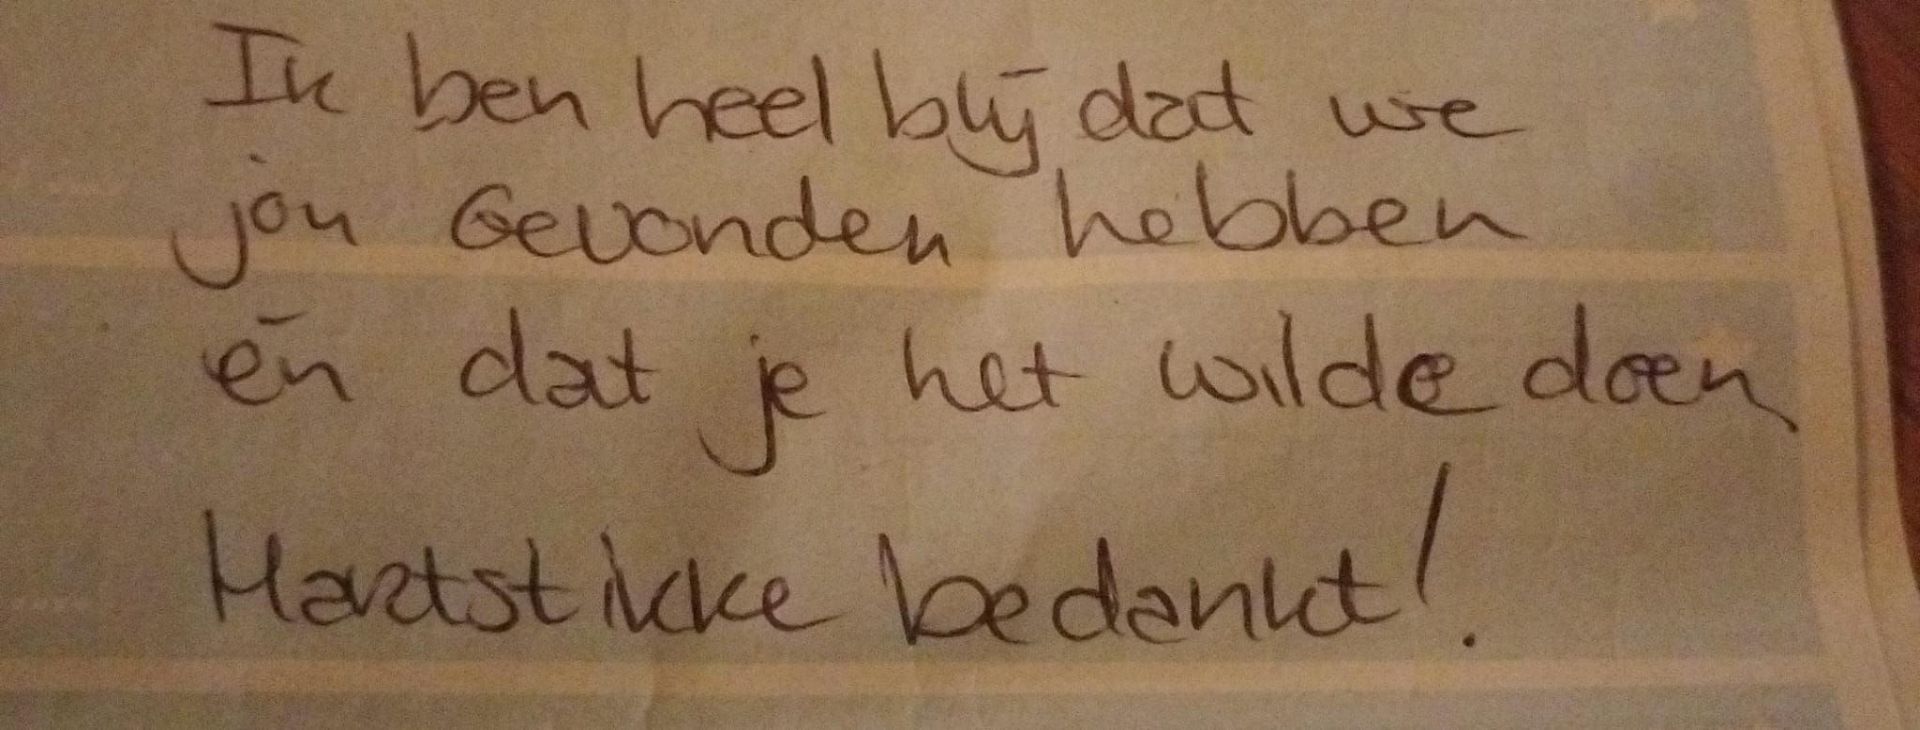 Ik ben heel blij dat we
jou Gevonden hebben
én dat je het wilde doen
Hartstikke bedankt!